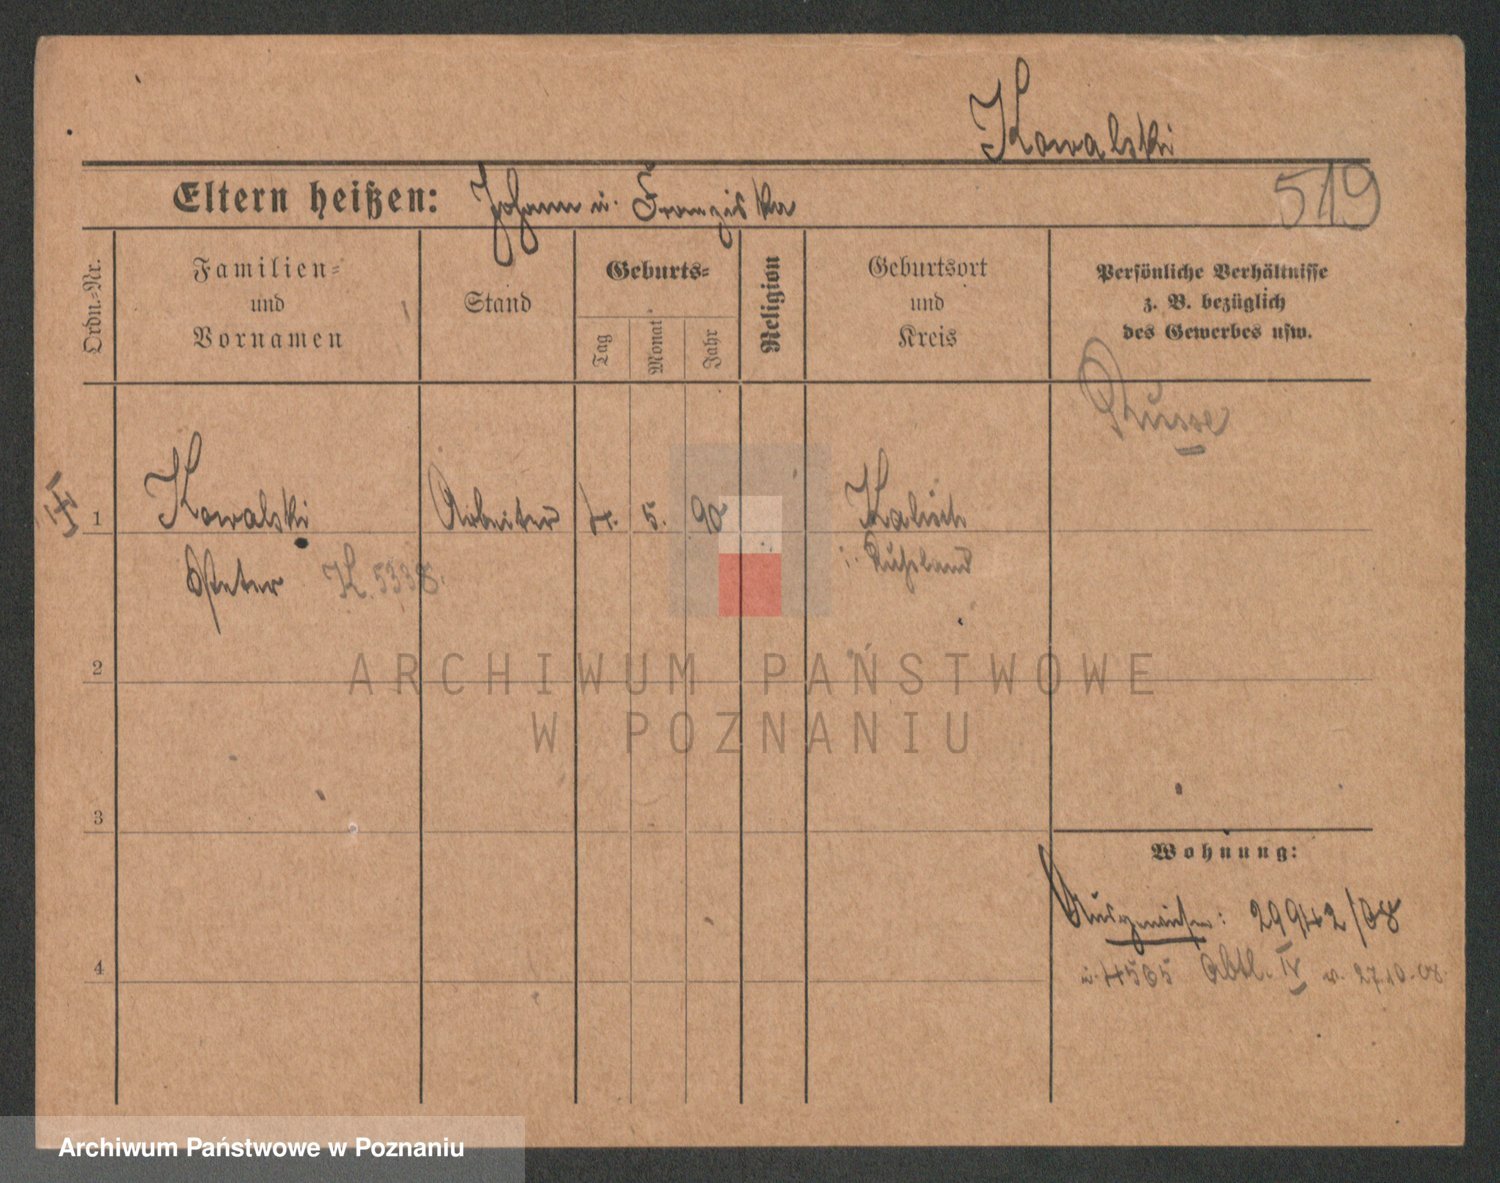 Kowalski
Eltern heißen: Johann u. Franziska
519
Ordn.-Nr.
Familien-
und
Vornamen
Stand
Geburts-
Tag
Monat
Jahr
Religion
Geburtsort
und
Kreis
Persönliche Verhältnisse
z. B. bezüglich
des Gewerbes usw.
Russe
1
Kowalski
Arbeiter
4. 5. 90
Kalisch
Peter K. 5338.
i. Rußland
2
ARCHIWUM PAŃSTWOWE
W POZNANIU
3
Wohnung:
Ausgewiesen: 29942/08
4
u. 4565 Abtl. IV v. 27.10.08.
Archiwum Państwowe w Poznaniu